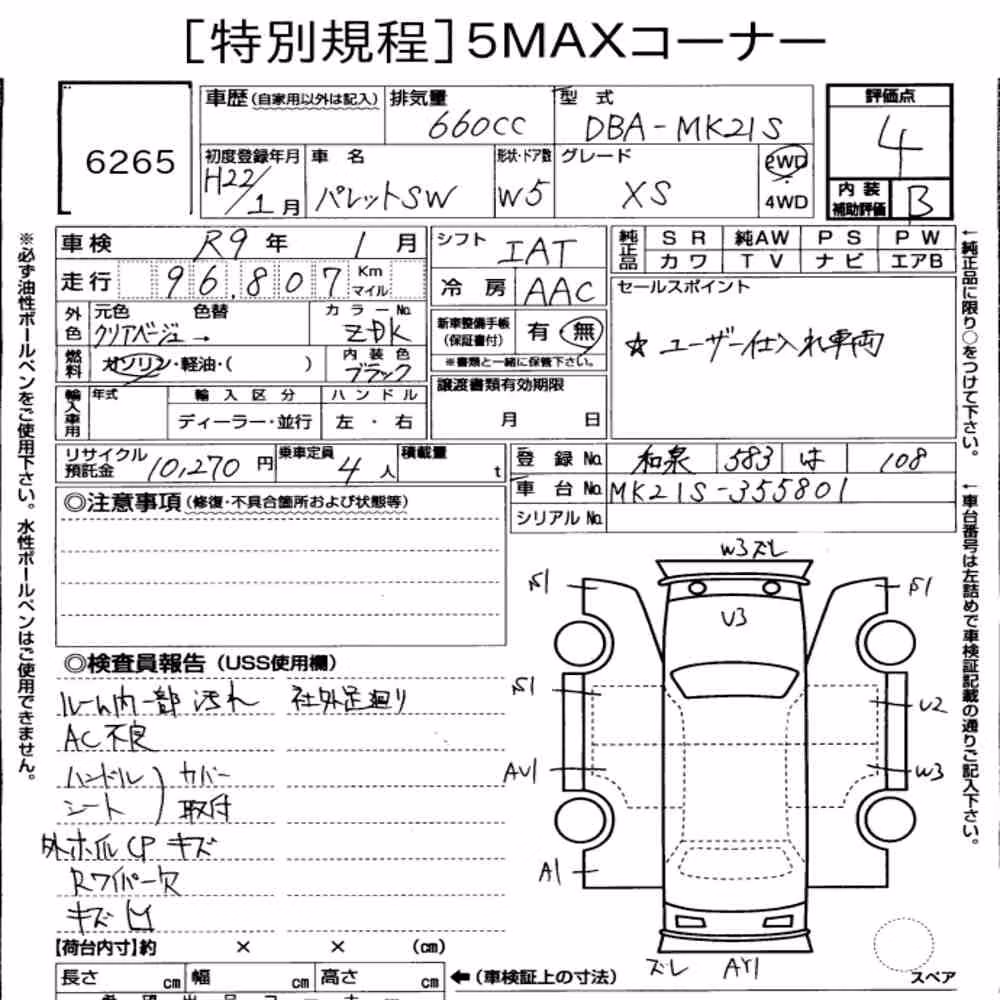 [特別規程]5MAXコーナー
6265
車歴(自家用以外は記入) 排気量 660cc 型式 DBA-MK21S 評価点 4
初度登録年月 H22/1月 車名 パレットSW 形状・ドア数 W5 グレード XS 2WD 4WD
内装補助評価 B
車検 R9年 1月 シフト IAT 純正品 SR 純AW PS PW
カワ TV ナビ エアB
走行 96,807 Km マイル 冷房 AAC
セールスポイント
☆ユーザー仕入れ車両
外色 元色 クリアベージュ→ 色替 カラーNo. ZDK
新車整備手帳(保証書付) 有・無
※書類と一緒に保管下さい。
燃料 ガソリン・軽油・( ) 内装色 ブラック
譲渡書類有効期限
月 日
輸入車用 年式 輸入区分 ハンドル
ディーラー・並行 左・右
リサイクル預託金 10,270円 乗車定員 4人 積載量 t
登録No. 和泉 583 は 108
車台No. MK21S-355801
シリアルNo.
◎注意事項(修復・不具合箇所および状態等)
◎検査員報告(USS使用欄)
ルーム内一部汚れ 社外足廻り
AC不良
ハンドル シート) カバー取付
外ホイルCPキズ
Rワイパー欠
キズ凹
【荷台内寸】約 × × (cm)
長さ cm 幅 cm 高さ cm ←(車検証上の寸法)
W3ズレ
S1
S1
U3
S1
U2
AU1
W3
A1
ズレ AY1
スペア
※必ず油性ボールペンをご使用下さい。水性ボールペンはご使用できません。
←純正品に限り○をつけて下さい。
←車台番号は左詰めで車検証記載の通りご記入下さい。